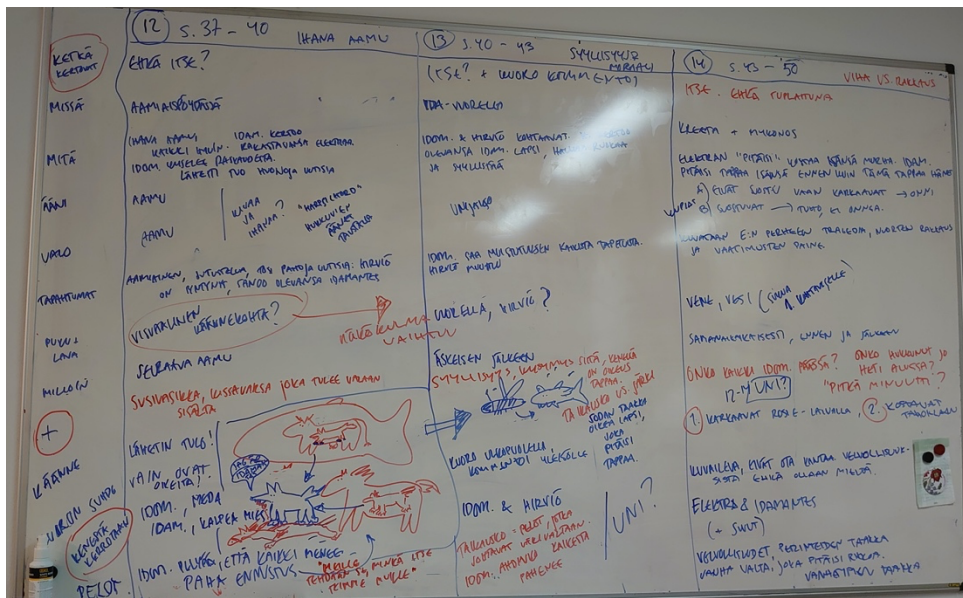 KETKÄ
KERTOVAT
MISSÄ
MITÄ
ÄÄNI
VALO
TAPAHTUMAT
PUKU &
LAVA
MILLOIN
+
KÄÄNNE
KUORON SUHDE
KENESTÄ
KERROTAAN
PELOT
12 S. 37 - 40 IHANA AAMU
EHKÄ ITSE?
AAMIAISPÖYDÄSSÄ
IHANA AAMU IDAM. KERTOO
KAIKKI HYVIN. RAKASTAVANSA ELEKTRAA.
LÄHETTI TUO HUONOJA UUTISIA
AAMU
AAMU
KUVAA
JA
IHANAA?
HUKKUVIEN
ÄÄNET
TAUSTALLA
ON SYNTYNYT, SANOO OLEVANSA IDAMANTES
VISUAALINEN
KÄÄNNEKOHTA?
NÄKÖKULMA
VAIHTUU
SEURAAVA AAMU
SUSIVASIKKA, JOKA TULEE VALAAN
SISÄLTÄ
LÄHETIN TULO!
VAIN OVAT
OIKEITA!
IDOM., MEDA
IDAM., KALPEA MIES
IDOM. ETTÄ KAIKKI MENEE
PAHA ENNUSTUS
"MEILLE
TEHDÄÄN SE, MINKÄ ITSE
TEIMME MUILLE"
13 S. 40 - 43 SYYLLISYYS
MORAALI
(ITSE? + KUORO KOMMENTOI)
IDA-VUORELLA
IDOM. & HIRVIÖ KOHTAAVAT. KERTOO
OLEVANSA IDAM. LAPSI,
JA SYYLLISTÄÄ
IDOM. SAA MUISTUTUKSEN KAIKISTA TAPETUISTA.
HIRVIÖ MUUTTUU
VUORELLA, HIRVIÖ?
ÄSKEISEN JÄLKEEN
SYYLLISYYS, KYSYMYS SIITÄ, KENELLÄ
ON OIKEUS
TAPPAA.
TAIKAUSKO VS. JÄRKI
SODAN TAAKKA
OIKEA LAPSI,
JOKA
PITÄISI
TAPPAA.
KUORO ULKOPUOLELLA,
KOMMENTOI YLEISÖLLE
IDOM. & HIRVIÖ
UNI?
TAIKAUSKO = PELOT, JOTKA
JOHTAVAT VERIVALTAAN.
IDOM: AHDINKO KAIKESTA
PAHENEE
14 S. 43 - 50 VIHA VS. RAKKAUS
ITSE. EHKÄ TUPLATTUNA
KREETA + MYKONOS
ELEKTRAN "PITÄISI" KOSTAA ISÄNSÄ MURHA. IDAM.
PITÄISI TAPPAA ISÄNSÄ ENNEN KUIN TÄMÄ TAPPAA HÄNET
A) EIVÄT SUOSTU VAAN KARKAAVAT → ONNI
B) SUOSTUVAT → TUHO, EI ONNEA.
KUVATAAN E:N PERHEEN TRAGEDIA, NUORTEN RAKKAUS
JA VAATIMUSTEN PAINE.
VENE, VESI
SAMANAIKAISESTI, ENNEN JA JÄLKEEN
ONKO KAIKKI IDOM. PÄÄSSÄ? ONKO HUKKUNUT JO
HETI ALUSSA?
UNI? "PITKÄ MINUUTTI"?
1. KARKAAVAT ROSE-LAIVALLA, 2. KOSTAVAT
TAHOILLAAN
KUVAILEVA, EIVÄT OTA KANTAA. VELVOLLISUUK-
SISTA EHKÄ OLLAAN MIELTÄ.
ELEKTRA & IDAMANTES
(+ SUVUT)
VELVOLLISUUDET, PERINTEIDEN TAAKKA
VANHA VALTA, JOKA PITÄISI RIKKOA.
VANHEMPIEN TAAKKA